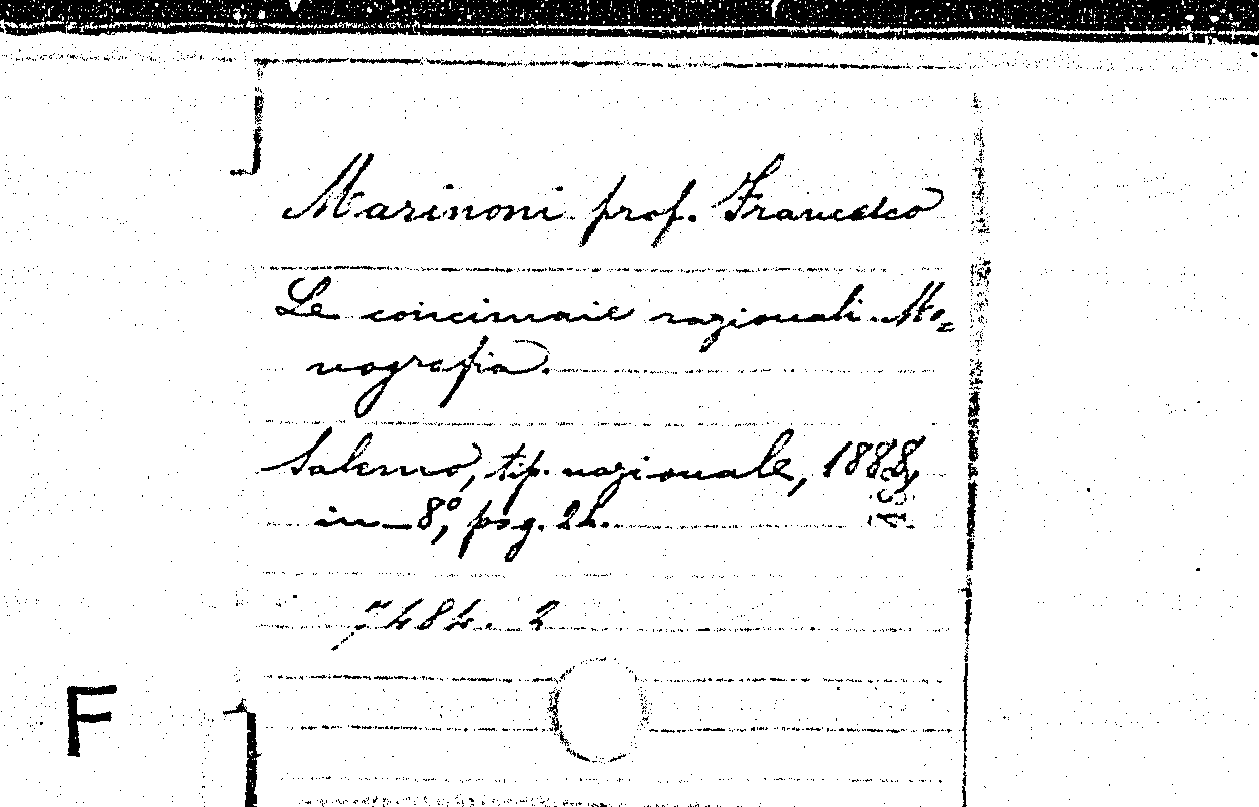 Marinoni prof. Francesco
Le concimaie razionali. Mo=
nografia.
Salerno, tip. nazionale, 1888,
in-8º, pag. 24.
7484. 2
F